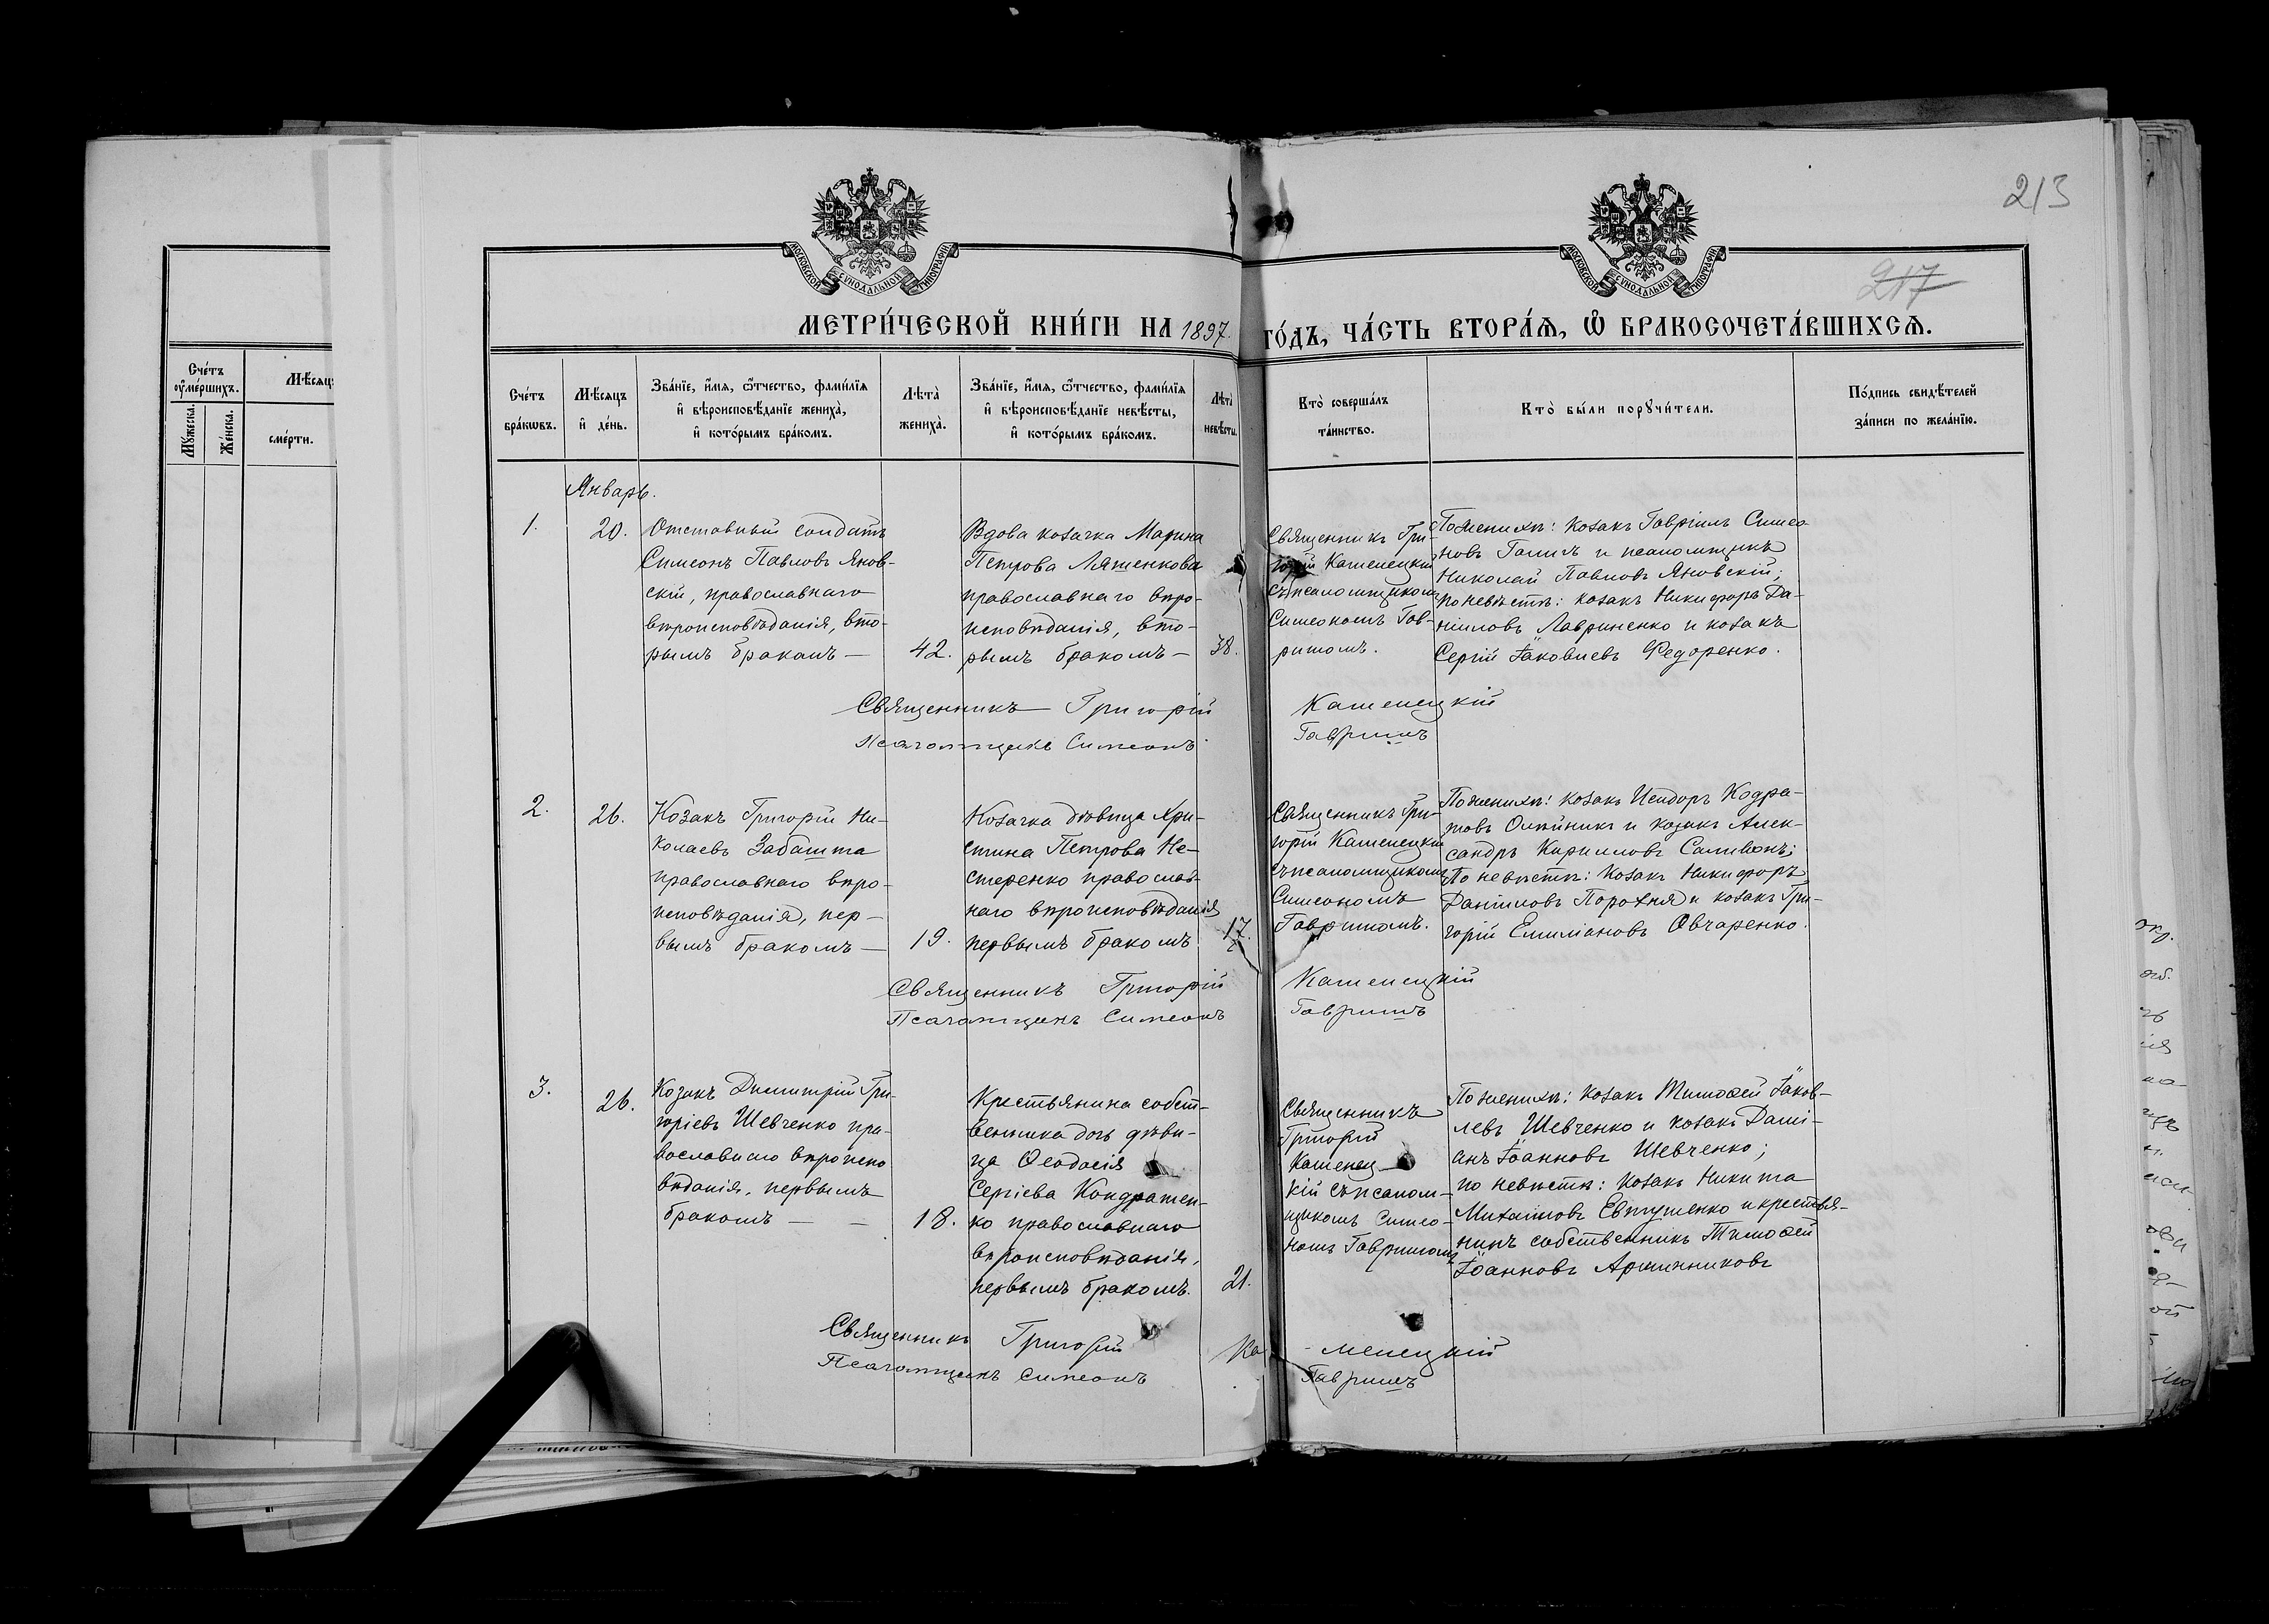 213
217
МОСКОВСКОЙ СѴНОДАЛЬНОЙ ТИПОГРАФІИ
МОСКОВСКОЙ СѴНОДАЛЬНОЙ ТИПОГРАФІИ
МЕТРИ́ЧЕСКОЙ КНИ́ГИ НА 1897 ГО́ДЪ, ЧА́СТЬ ВТОРА́Ѧ, Ѽ БРАКОСОЧЕТА́ВШИХСѦ.
Сче́тъ
оу҆ме́ршихъ.
Мꙋ́жеска.
Же́нска.
Мѣ́сяцъ
сме́рти.
Сче́тъ
бра́кѡвъ.
Мѣ́сяцъ
и҆ де́нь.
Зва́нїе, и҆́мѧ, ѻ҆́тчество, фами́лїѧ
и҆ вѣроисповѣ́данїе жениха̀,
и҆ кото́рымъ бра́комъ.
Лѣта̀
жениха̀.
Зва́нїе, и҆́мѧ, ѻ҆́тчество, фами́лїѧ
и҆ вѣроисповѣ́данїе невѣ́сты,
и҆ кото́рымъ бра́комъ.
Лѣта̀
невѣ́сты.
Кто̀ соверша́лъ
та́инство.
Кто̀ бы́ли порꙋчи́тели.
По́дпись свидѣ́телей
за́писи по жела́нїю.
Январь.
1.
20.
Отставный солдатъ
Симеонъ Павловъ Янов-
скій, православнаго
вѣроисповѣданія, вто-
рымъ бракомъ —
42.
Вдова козачка Марина
Петрова Ляшенкова
православнаго вѣро-
исповѣданія, вто-
рымъ бракомъ —
38.
Священникъ Гри-
горій Каменецкій
съ псаломщикомъ
Симеономъ Гав-
ришомъ.
По женихѣ: козакъ Гавріилъ Симео-
новъ Галичъ и псаломщикъ
Николай Павловъ Яновскій;
по невѣстѣ: козакъ Никифоръ Да-
ніиловъ Лавриненко и козакъ
Сергій Іаковлевъ Федоренко.
Священникъ Григорій Каменецкій
Псаломщикъ Симеонъ Гавришъ
2.
26.
Козакъ Григорій Ни-
колаевъ Забашта
православнаго вѣро-
исповѣданія, пер-
вымъ бракомъ —
19.
Козачка дѣвица Хри-
стина Петрова Не-
стеренко православ-
наго вѣроисповѣданія
первымъ бракомъ.
17.
Священникъ Гри-
горій Каменецкій
съ псаломщикомъ
Симеономъ
Гавришомъ.
По женихѣ: козакъ Исидоръ Кодра-
товъ Олейникъ и козакъ Алек-
сандръ Кирилловъ Саливонъ;
По невѣстѣ: козакъ Никифоръ
Даніиловъ Порохня и козакъ Гри-
горій Емиліановъ Овчаренко.
Священникъ Григорій Каменецкій
Псаломщикъ Симеонъ Гавришъ
3.
26.
Козакъ Димитрій Гри-
горіевъ Шевченко пра-
вославнаго вѣроиспо
вѣданія, первымъ
бракомъ — —
18.
Крестьянина собст-
венника дочь дѣви-
ца Ѳеодосія
Сергіева Кондратен-
ко православнаго
вѣроисповѣданія,
первымъ бракомъ.
21.
Священникъ
Григорій
Каменец-
кій съ псалом-
щикомъ Симео-
номъ Гавришомъ
По женихѣ: козакъ Тимоѳей Іаков-
левъ Шевченко и козакъ Даміанъ Іоанновъ Шевченко;
по невѣстѣ: козакъ Никита
Михаиловъ Евтушенко и крестья-
нинъ собственникъ Тимоѳей
Іоанновъ
Священникъ Григорій Каменецкій
Псаломщикъ Симеонъ Гавришъ